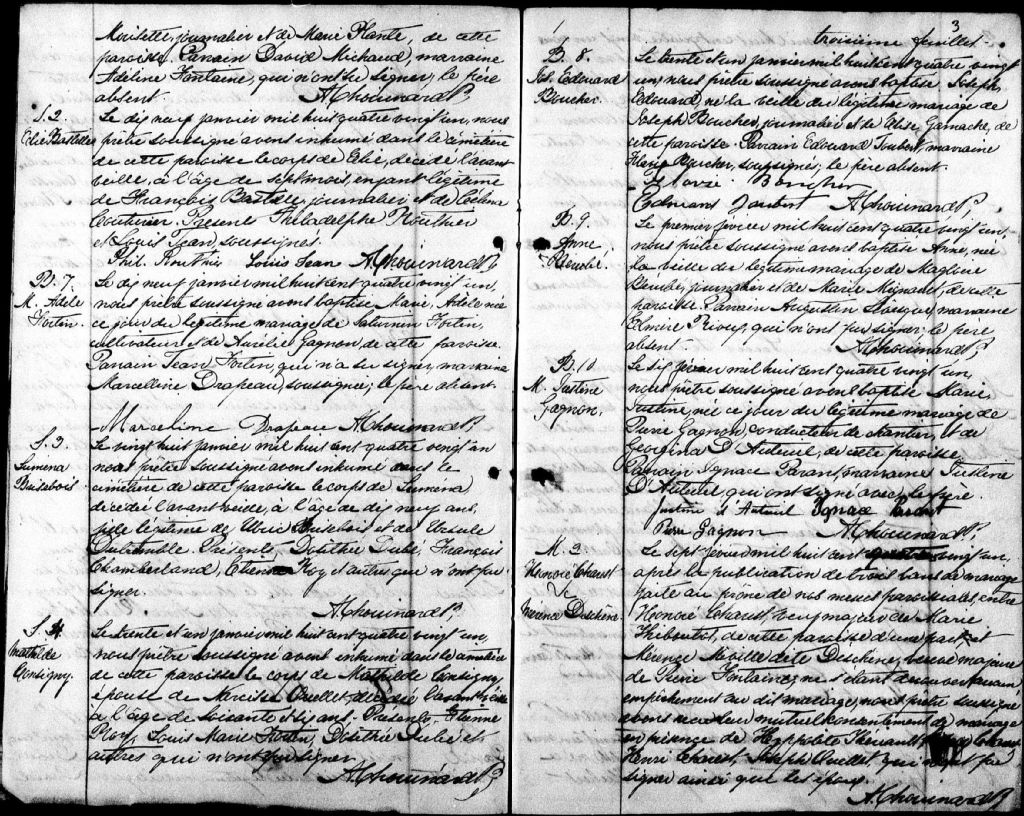 Morisette, journalier et de Marie Plante, de cette
paroisse. Parrain David Michaud, marraine
Adeline Fontaine, qui n'ont su signer, le père
absent. AChouinard Ptr
S. 2.
Le dix neuf janvier mil huit cent quatre vingt un, nous
prêtre soussigné avons inhumé dans le cimetière
de cette paroisse le corps de décédé l'avant
veille, à l'âge de sept mois, enfant légitime
de François journalier et de
Couturier. Présent Philadelphe Routhier
et Louis Jean, soussignés.
Phil. Routhier Louis Jean AChouinard Ptr
B. 7.
M. Adèle
Fortin.
Le dix neuf janvier mil huit cent quatre vingt un,
nous prêtre soussigné avons baptisé Marie, Adèle née
ce jour du légitime mariage de Saturnin Fortin,
cultivateur et de Aurélie Gagnon, de cette paroisse.
Parrain Jean Fortin, qui n'a su signer, marraine
Marcelline Drapeau, soussignée; le père absent.
Marceline Drapeau AChouinard Ptr
S. 3.
Luména
Boisebois
Le vingt huit janvier mil huit cent quatre vingt un
nous prêtre soussigné avons inhumé dans le
cimetière de cette paroisse le corps de Luména,
décédée l'avant veille, à l'âge de dix neuf ans,
fille légitime de et de Ursule
Présents, Dosithé Dubé, François
Chamberland, Etienne Roy et autres qui n'ont su
signer.
AChouinard Ptr
S. 4.
Mathilde
Consigny.
Le trente et un janvier mil huit cent quatre vingt un,
nous prêtre soussigné avons inhumé dans le cimetière
de cette paroisse le corps de Mathilde Consigny,
épouse de Narcisse Ouellet, décédée l'avant veille
à l'âge de soixante et ans. Présents, Etienne
Roy, Louis Marie Fortin, Dosithé Dubé et
autres qui n'ont su signer.
AChouinard Ptr
3
troisième feuillet.
B. 8.
Jos. Edouard
Boucher.
Le trente et un janvier mil huit cent quatre vingt
un, nous prêtre soussigné avons baptisé Joseph,
Edouard, né la veille du légitime mariage de
Joseph Boucher, journalier et de Elise Gamache, de
cette paroisse. Parrain Edouard Joubert, marraine
Boucher, soussignés; le père absent.
Boucher
Edouard Joubert AChouinard Ptr
B. 9.
Anne
Bérubé.
Le premier février mil huit cent quatre vingt un,
nous prêtre soussigné avons baptisé Anne, née
la veille du légitime mariage de Magloire
Bérubé, journalier et de Marie Mignault, de cette
paroisse. Parrain Augustin marraine
Elmire Proulx, qui n'ont su signer, le père
absent. AChouinard Ptr
B. 10
M. Justine
Gagnon.
Le six février mil huit cent quatre vingt un,
nous prêtre soussigné avons baptisé Marie,
Justine, née ce jour du légitime mariage de
Pierre Gagnon, conducteur de chantier, et de
Georgina D'Auteuil, de cette paroisse.
Parrain Ignace Parant, marraine Justine
D'Auteuil, qui ont signé avec le père.
Justine d'Auteuil Ignace Parant
Pierre Gagnon AChouinard Ptr
M. 3
Honoré Chaust
&
Mérence Deschêne
Le sept février mil huit cent quatre vingt un,
après la publication de trois bans de mariage
faite au prône de nos messes paroissiales, entre
Honoré Chaust, veuf majeur de Marie
Thiboutot, de cette paroisse d'une part, et
Mérence Miville dite Deschêne, veuve majeure
de Pierre Fontaine, ne s'étant découvert aucun
empêchement au dit mariage, nous prêtre soussigné
avons reçu leur mutuel consentement de mariage
en présence de Hyppolite Thériault,
Henri Chaust, Joseph Ouellet, qui n'ont su
signer ainsi que les époux.
AChouinard Ptr